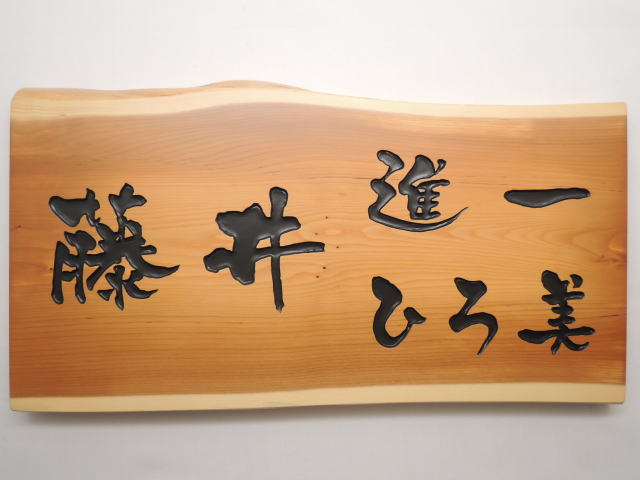 藤井
進一
ひろ美